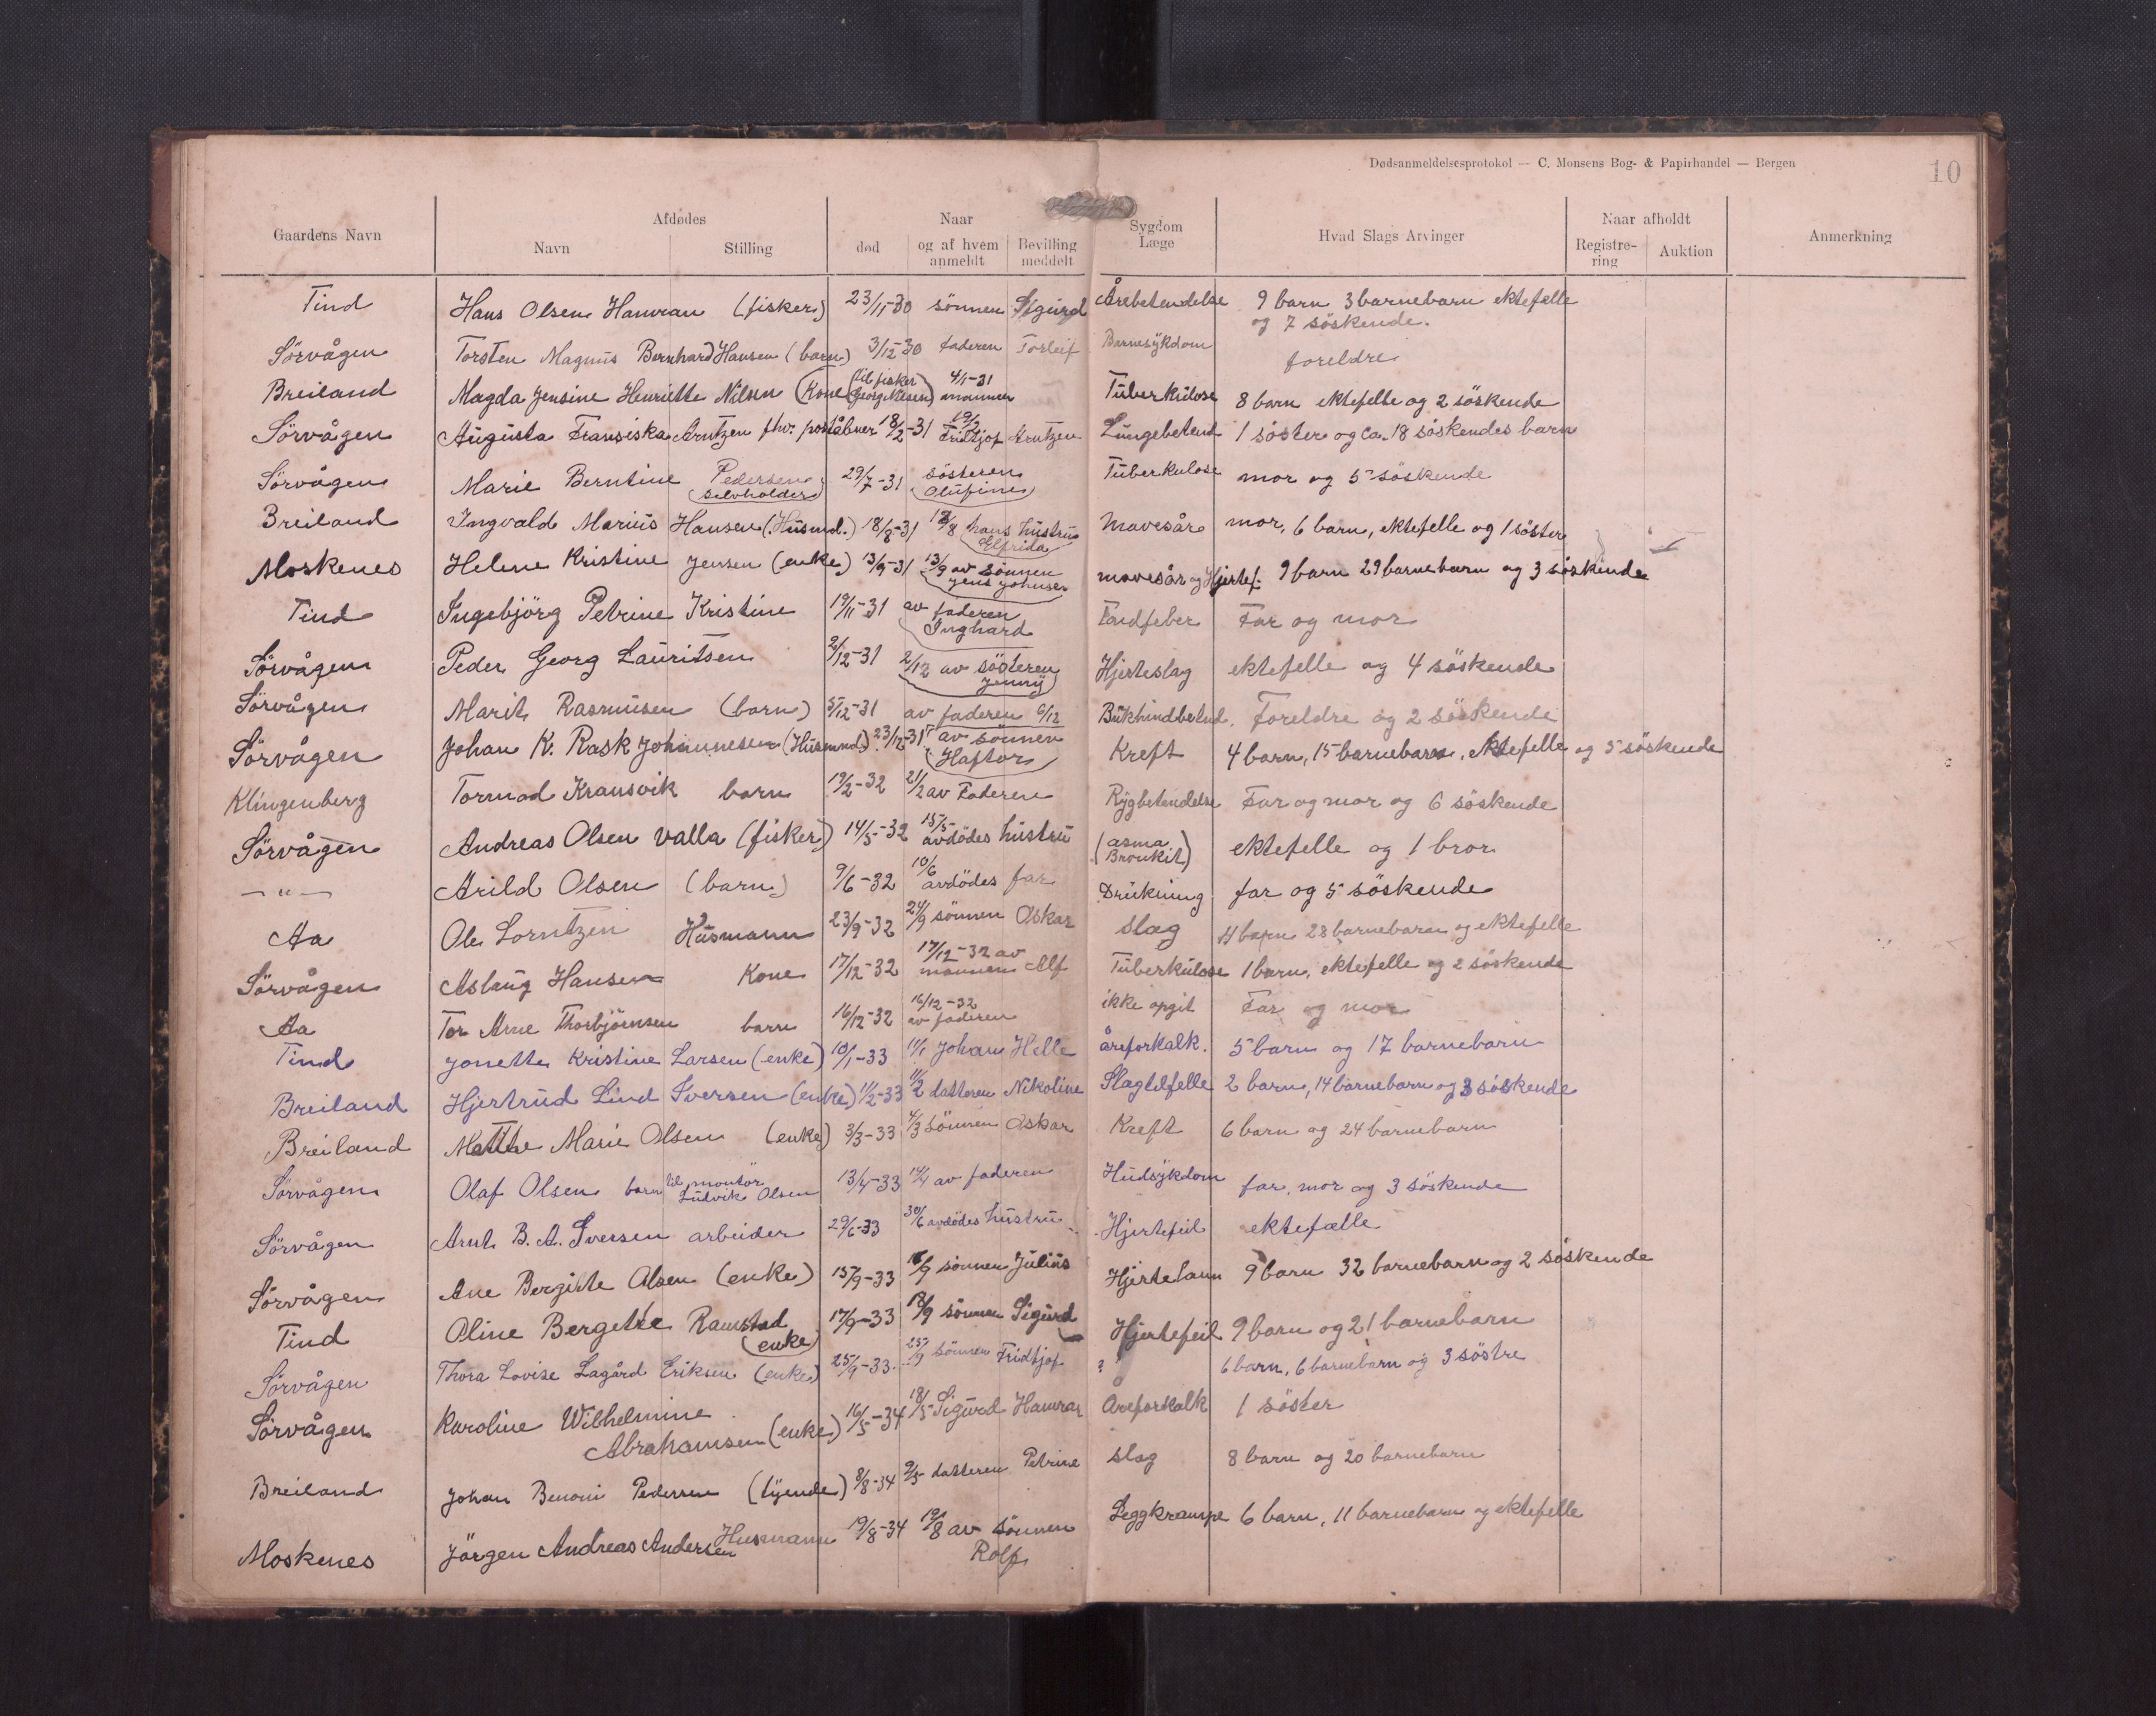 Dødsanmeldelsesprotokol — C. Monsens Bog- & Papirhandel — Bergen
10
Gaardens Navn Afdødes Navn Stilling Naar død og af hvem anmeldt Bevilling meddelt Sygdom Læge Hvad Slags Arvinger Naar afholdt Registrering Auktion Anmerkning
Tind Hans Olsen Hamran (fisker) 23/11-30 sönnen Sigurd Årebetendelse 9 barn 3 barnebarn ektefelle
og 7 söskende.
Sörvågen Torsten Magnus Bernhard Hansen (barn) 3/12-30 faderen Torleif Barnesykdom foreldre
Breiland Magda Jensine Henriette Nilsen (Kone (til fisker Georg Nilsen) 4/1-31 mannen Tuberkulose 8 barn ektefelle og 2 söskende
Sörvågen Augusta Fransiska Arntzen fhv. poståbner 18/2-31 19/2 Fridtjof Arntzen Lungebetend 1 söster og ca. 18 söskendes barn
Sörvågen Marie Berntine Pedersen (selvholder) 29/7-31 sösteren Olufine Tuberkulose mor og 5 söskende
Breiland Ingvald Marius Hansen (Husmd.) 18/8-31 18/8 hans hustru Elfrida Mavesår mor, 6 barn, ektefelle og 1 söster
Moskenes Helene Kristine Jensen (enke) 13/9-31 13/9 av sönnen Jens Johnsen mavesår og Hjertef. 9 barn 29 barnebarn og 3 söskende
Tind Ingebjörg Petrine Kristine 19/11-31 av faderen Inghard Tandfeber Far og mor
Sörvågen Peder Georg Lauritsen 2/12-31 2/12 av sösteren Jenny Hjerteslag ektefelle og 4 söskende
Sörvågen Marit Rasmusen (barn) 5/12-31 av faderen 6/12 Bukhindbetnd. Foreldre og 2 söskende
Sörvågen Johan K. Rask Johannesen (Husmnd.) 23/12-31 av sönnen Haftor Kreft 4 barn, 15 barnebarn, ektefelle og 5 söskende
Klingenberg Tormod Kransvik barn 19/2-32 21/2 av Faderen Rygbetendelse Far og mor og 6 söskende
Sörvågen Andreas Olsen Valla (fisker) 14/5-32 15/5 avdödes hustru (asma Bronkit) ektefelle og 1 bror
— " — Arild Olsen (barn) 9/6-32 10/6 avdödes far Drukning far og 5 söskende
Aa Ole Lorntzen Husmann 23/9-32 24/9 sönnen Oskar slag 4 barn 28 barnebarn og ektefelle
Sörvågen Aslaug Hansen Kone 17/12-32 17/12-32 av mannen Alf Tuberkulose 1 barn, ektefelle og 2 söskende
Aa Tor Arne Thorbjörnsen barn 16/12-32 16/12-32 av faderen ikke opgit Far og mor
Tind Jonette Kristine Larsen (enke) 10/1-33 11/1 Johan Helle åreforkalk. 5 barn og 17 barnebarn
Breiland Hjertrud Lind Iversen (enke) 11/2-33 11/2 datteren Nikoline Slagtilfelle 2 barn, 14 barnebarn og 3 söskende
Breiland Matthe Marie Olsen (enke) 3/3-33 4/3 Sönnen Oskar Kreft 6 barn og 24 barnebarn
Sörvågen Olaf Olsen barn til montör Ludvik Olsen 13/4-33 14/4 av faderen Hudsykdom far, mor og 3 söskende
Sörvågen Arnt B. A. Iversen arbeider 29/6-33 30/6 avdödes hustru Hjertefeil ektefælle
Sörvågen Ane Bergitte Olsen (enke) 15/9-33 16/9 sönnen Julius Hjertelam 9 barn 32 barnebarn og 2 söskende
Tind Oline Bergette Ramstad (enke) 17/9-33 18/9 sönnen Sigurd Hjertefeil 9 barn og 21 barnebarn
Sörvågen Thora Lovise Lagård Eriksen (enke) 25/9-33 25/9 sönnen Fridtjof ? 6 barn, 6 barnebarn og 3 söstre
Sörvågen Karoline Wilhelmine Abrahamsen (enke) 16/5-34 18/5 Sigurd Hamran Åreforkalk 1 söster
Breiland Johan Benoni Pedersen (tyende) 8/8-34 9/8 datteren Petrine slag 8 barn og 20 barnebarn
Moskenes Jörgen Andreas Andersen Husmann 19/8-34 19/8 av sönnen Rolf Leggkrampe 6 barn, 11 barnebarn og ektefelle